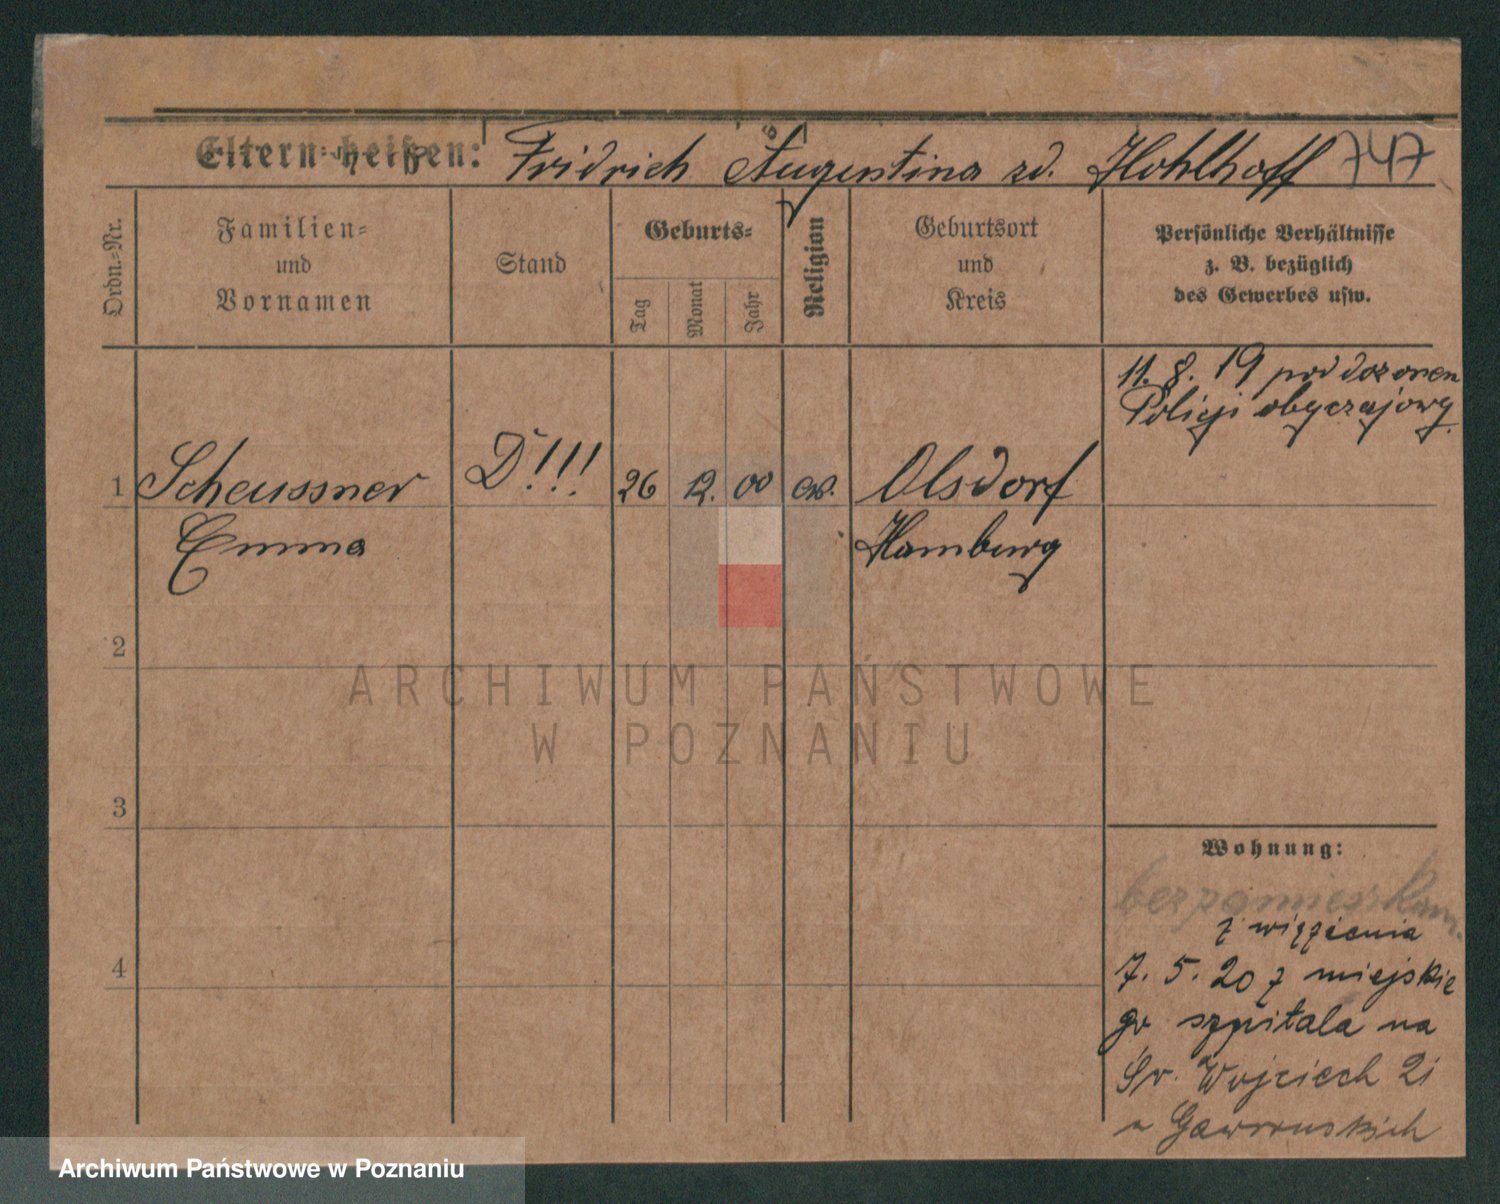 Eltern heißen: Fridrich Augustina zd. Hohlhoff 747
Ordn.-Nr.
Familien-
und
Vornamen
Stand
Geburts-
Tag
Monat
Jahr
Religion
Geburtsort
und
Kreis
Persönliche Verhältnisse
z. B. bezüglich
des Gewerbes usw.
11. 8. 19 pod dozorem
Policji obyczajowy
1 Scheussner D!!! 26 12. 00 ew. Olsdorf
Emma Hamburg
2
3
4
Wohnung:
bez zamieszkan.
z więzienia
7. 5. 20 z miejskie
go szpitala na
Św. Wojciech 21
u
ARCHIWUM PAŃSTWOWE
W POZNANIU
Archiwum Państwowe w Poznaniu